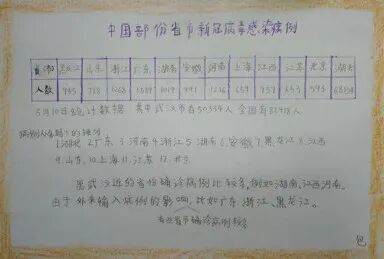 中国部份省市新冠病毒感染病例
省(市) 黑龙江 山东 浙江 广东 湖南 安徽 河南 上海 江西 江苏 北京 湖北
人数 945 788 1268 1589 1019 991 1276 659 937 653 593 68134
5月10日统计数据 其中武汉市有50334人 全国有82918人
1.湖北 2.广东 3.河南 4.浙江 5.湖南 6.安徽 7.黑龙江 8.江西
9.山东 10.上海 11.江苏 12.北京
离武汉近的省份确诊病例比较多,例如湖南、江西、河南。
由于外来输入病例的影响,比如广东、浙江、黑龙江。
有些省市确诊病例较多